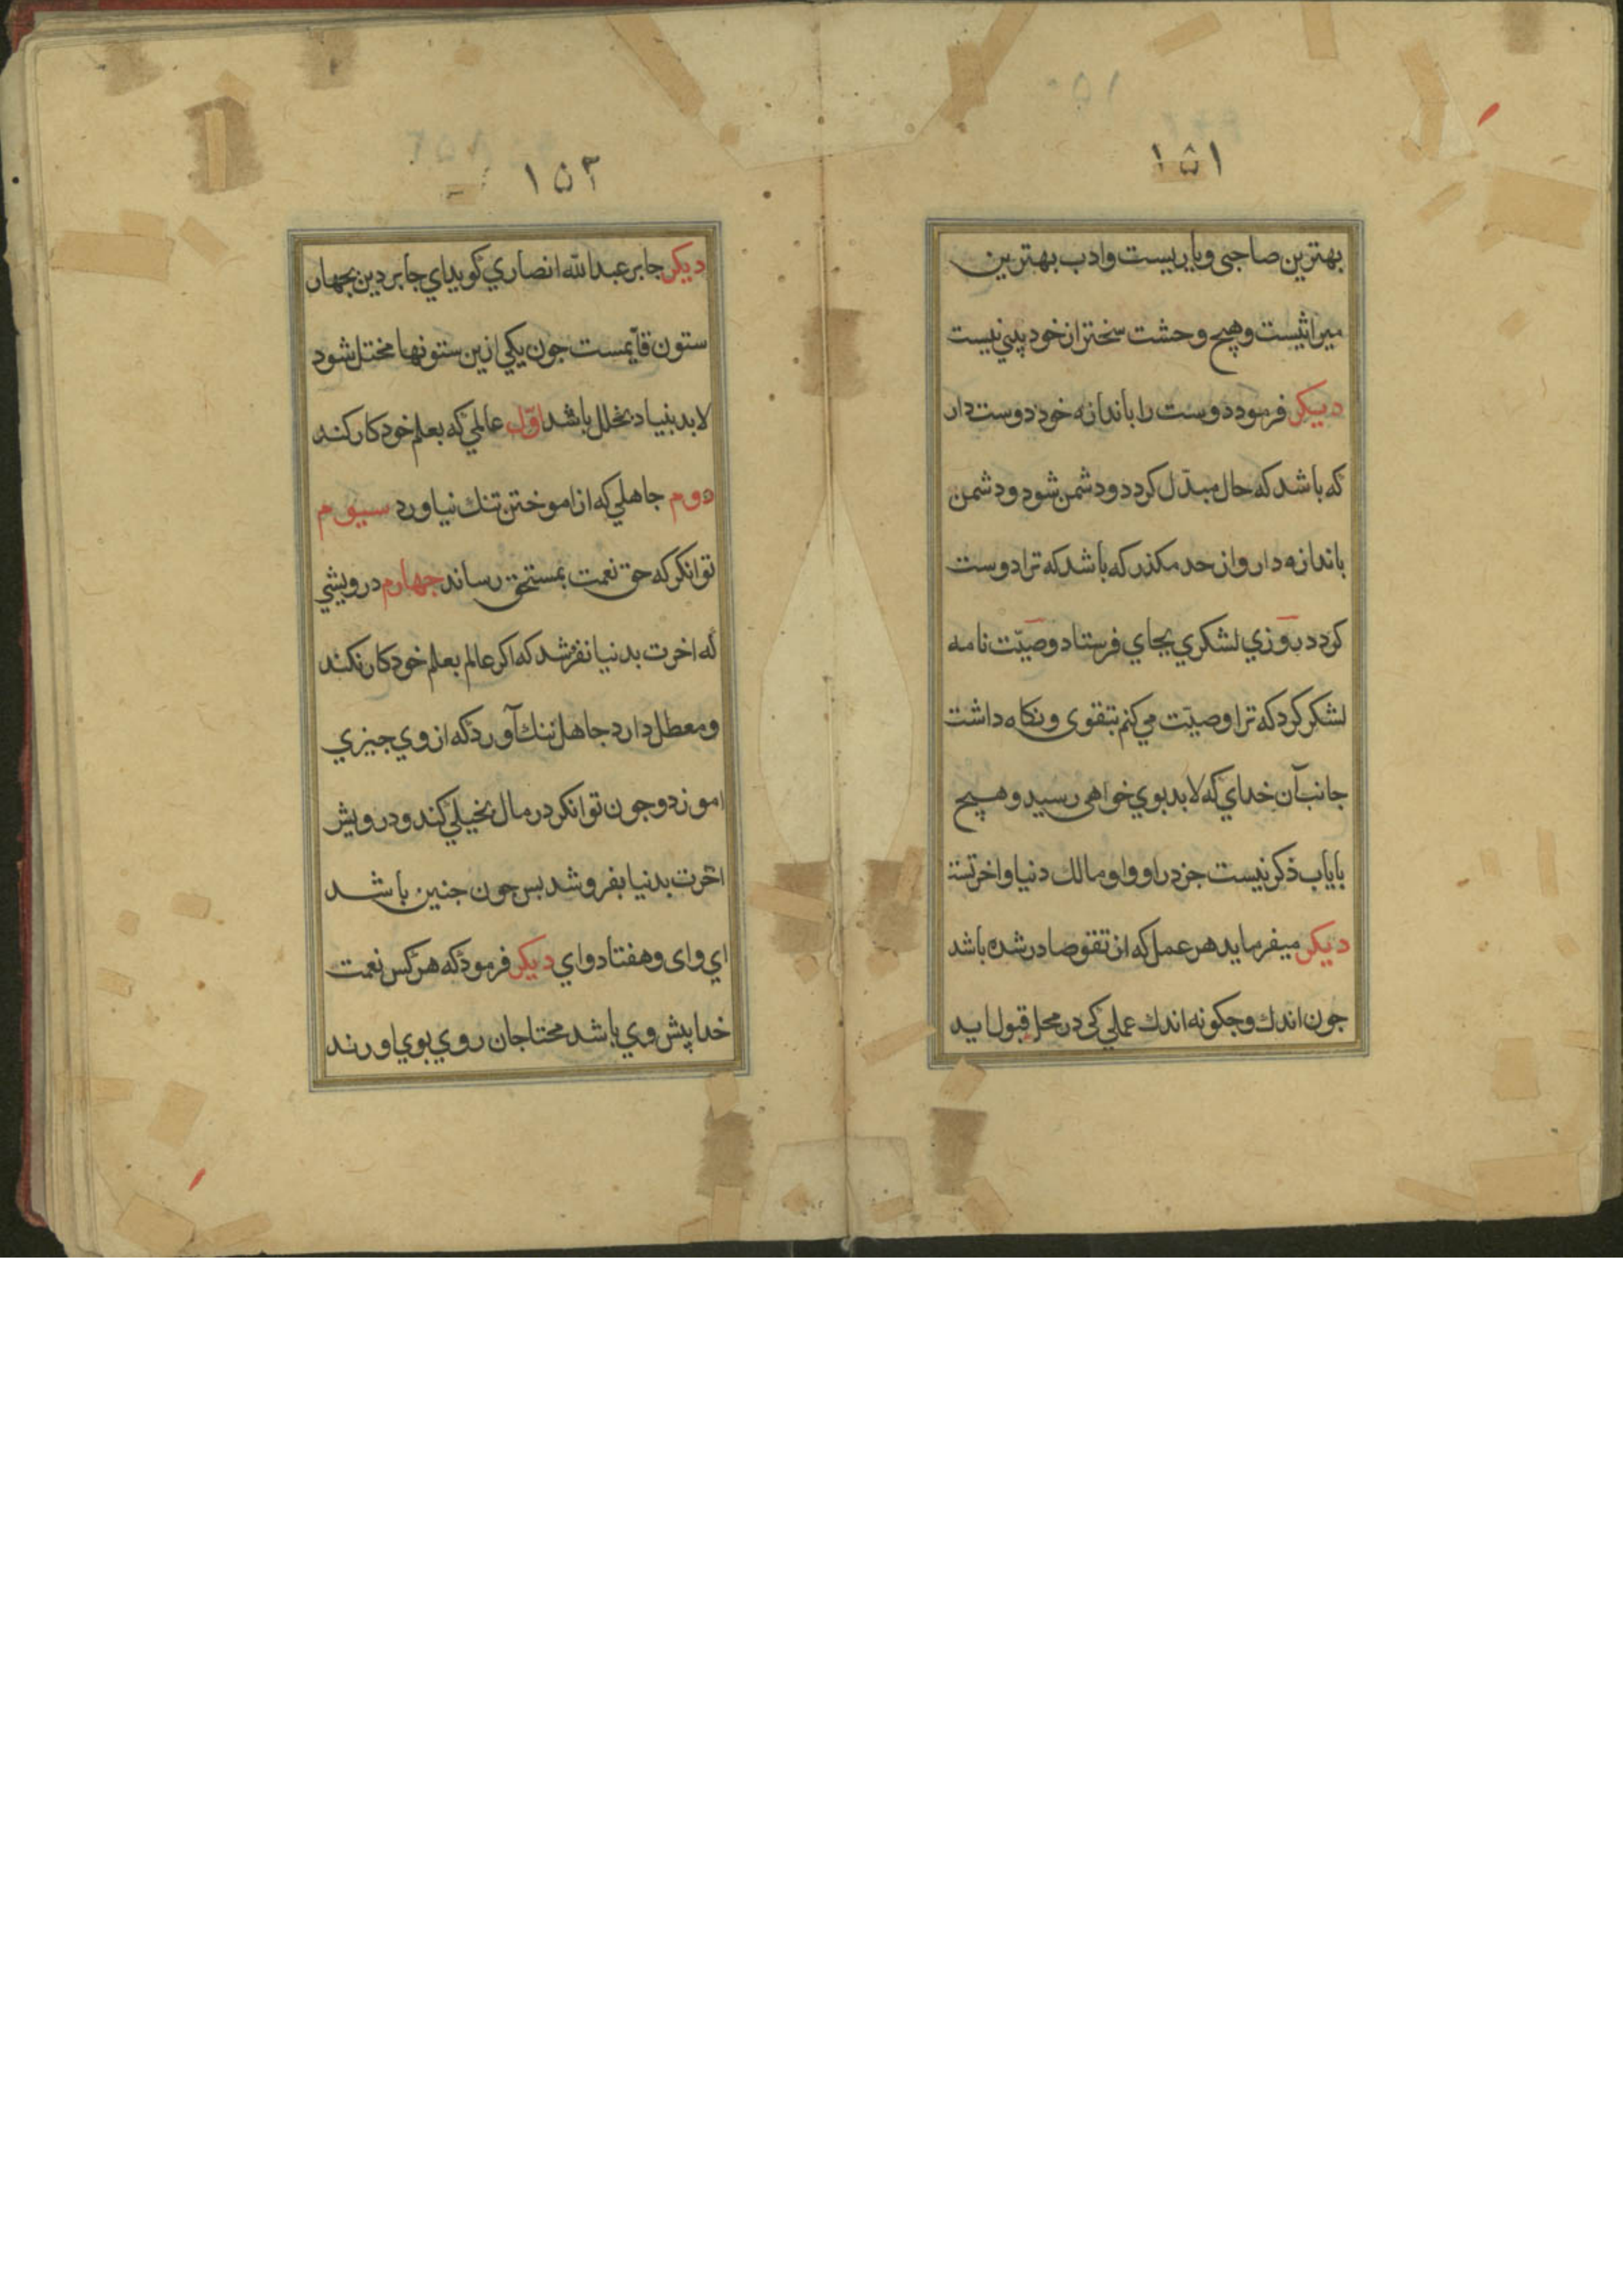 ١٥١
بهترین صاحبی و یاریست و ادب بهترین
میراثیست و هیچ وحشت سختر از خود بینی نیست
دیکر فرمود دوست را باندازه خود دوست دار
که باشد که حال مبدّل کردد و دشمن شود و دشمن
باندازه دار و از حد مکذر که باشد که ترا دوست
کردد روزي لشکري بجاي فرستاد وصیّت نامه
لشکر کرد که ترا وصیّت می کنم بتقوی و نکاه داشت
جانب آن خداي که لابد بوي خواهی رسید و هیچ
ذکر نیست جز در او و او مالك دنیا و اخرتست
دیکر میفرماید هر عمل که از تقوی صادر شده باشد
جون اندك و جکونه اندك عملي کی در محل قبول اید
١٥٢
دیکر جابر عبدالله انصاري کوید اي جابر دین بجهار
ستون قایمست جون یکي ازین ستونها مختل شود
لابد بنیاد بخلل باشد اوّل عالمي که بعلم خود کار کند
دوم جاهلي که از اموختن ننك نیاورد سیوم
توانکر که حق نعمت بمستحق رساند جهارم درویشي
که اخرت بدنیا نفرشد که اکر عالم بعلم خود کار نکند
و معطل دارد جاهل ننك آورد که از وي جیزي
اموزد و جون توانکر در مال بخیلي کند و درویش
اخرت بدنیا بفروشد بس جون جنین باشد
اي وای و هفتاد واي دیکر فرمود که هر کس نعمت
خدا پیش وي باشد محتاجان روي بوي اورند